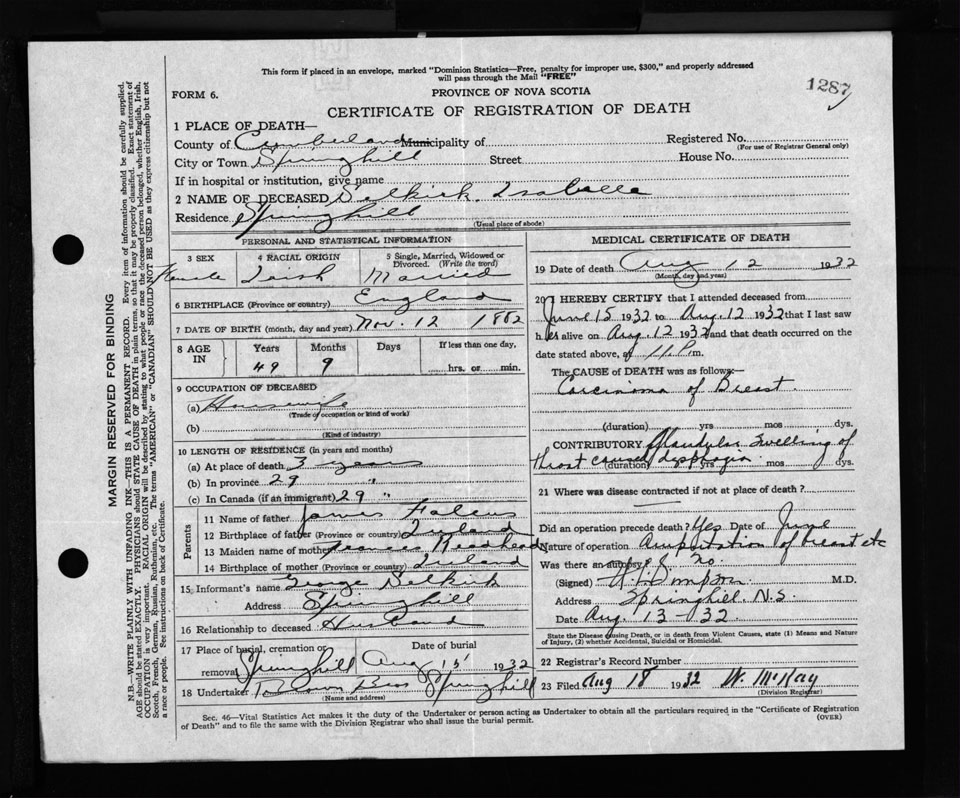 This form if placed in an envelope, marked "Dominion Statistics—Free, penalty for improper use, $300," and properly addressed
will pass through the Mail "FREE"
1287
FORM 6.
PROVINCE OF NOVA SCOTIA
CERTIFICATE OF REGISTRATION OF DEATH
1 PLACE OF DEATH—
County of Cumberland Municipality of
Registered No.
(For use of Registrar General only)
City or Town Springhill Street House No.
If in hospital or institution, give name
2 NAME OF DECEASED Selkirk, Isabelle
Residence Springhill
(Usual place of abode)
PERSONAL AND STATISTICAL INFORMATION
3 SEX 4 RACIAL ORIGIN 5 Single, Married, Widowed or Divorced. (Write the word)
Female Irish Married
6 BIRTHPLACE (Province or country) England
7 DATE OF BIRTH (month, day and year) Nov. 12 1882
8 AGE IN Years Months Days If less than one day,
49 9 hrs. or min.
9 OCCUPATION OF DECEASED
(a) Housewife
(Trade or occupation or kind of work)
(b)
(Kind of industry)
10 LENGTH OF RESIDENCE (in years and months)
(a) At place of death 3 years
(b) In province 29 "
(c) In Canada (if an immigrant) 29 "
Parents
11 Name of father James
12 Birthplace of father (Province or country) Ireland
13 Maiden name of mother Frances Readhead
14 Birthplace of mother (Province or country) Ireland
15 Informant's name George Selkirk
Address Springhill
16 Relationship to deceased Husband
17 Place of burial, cremation or removal Date of burial
Springhill Aug 15 1932
18 Undertaker Bros Springhill
(Name and address)
MEDICAL CERTIFICATE OF DEATH
19 Date of death Aug 12 1932
(Month, day and year)
20 I HEREBY CERTIFY that I attended deceased from
June 15 1932 to Aug. 12 1932 that I last saw
her alive on Aug. 12 1932 and that death occurred on the
date stated above, at 11 P.m.
The CAUSE of DEATH was as follows:—
Carcinoma of Breast.
(duration) yrs mos dys.
CONTRIBUTORY Glandular swelling of
throat caused dysphagia
(duration) yrs mos dys.
21 Where was disease contracted if not at place of death?
Did an operation precede death? Yes Date of June
Nature of operation Amputation of breast etc
Was there an autopsy? No.
(Signed) M.D.
Address Springhill. N.S.
Date Aug. 13 - 32
State the Disease causing Death, or in death from Violent Causes, state (1) Means and Nature
of Injury, (2) whether Accidental, Suicidal or Homicidal.
22 Registrar's Record Number
23 Filed Aug 18 1932 W. McKay
(Division Registrar)
Sec. 46—Vital Statistics Act makes it the duty of the Undertaker or person acting as Undertaker to obtain all the particulars required in the "Certificate of Registration
of Death" and to file the same with the Division Registrar who shall issue the burial permit.
(OVER)
MARGIN RESERVED FOR BINDING
N.B.—WRITE PLAINLY WITH UNFADING INK—THIS IS A PERMANENT RECORD. Every item of information should be carefully supplied.
AGE should be stated EXACTLY. PHYSICIANS should STATE CAUSE OF DEATH in plain terms, so that it may be properly classified. Exact statement of
OCCUPATION is very important. RACIAL ORIGIN will be described by stating to what people or race the deceased person belonged, whether English, Irish,
Scotch, French, German, Russian, Ruthenian, etc. The terms "AMERICAN" or "CANADIAN" SHOULD NOT BE USED as they express citizenship but not
a race or people. See instructions on back of Certificate.